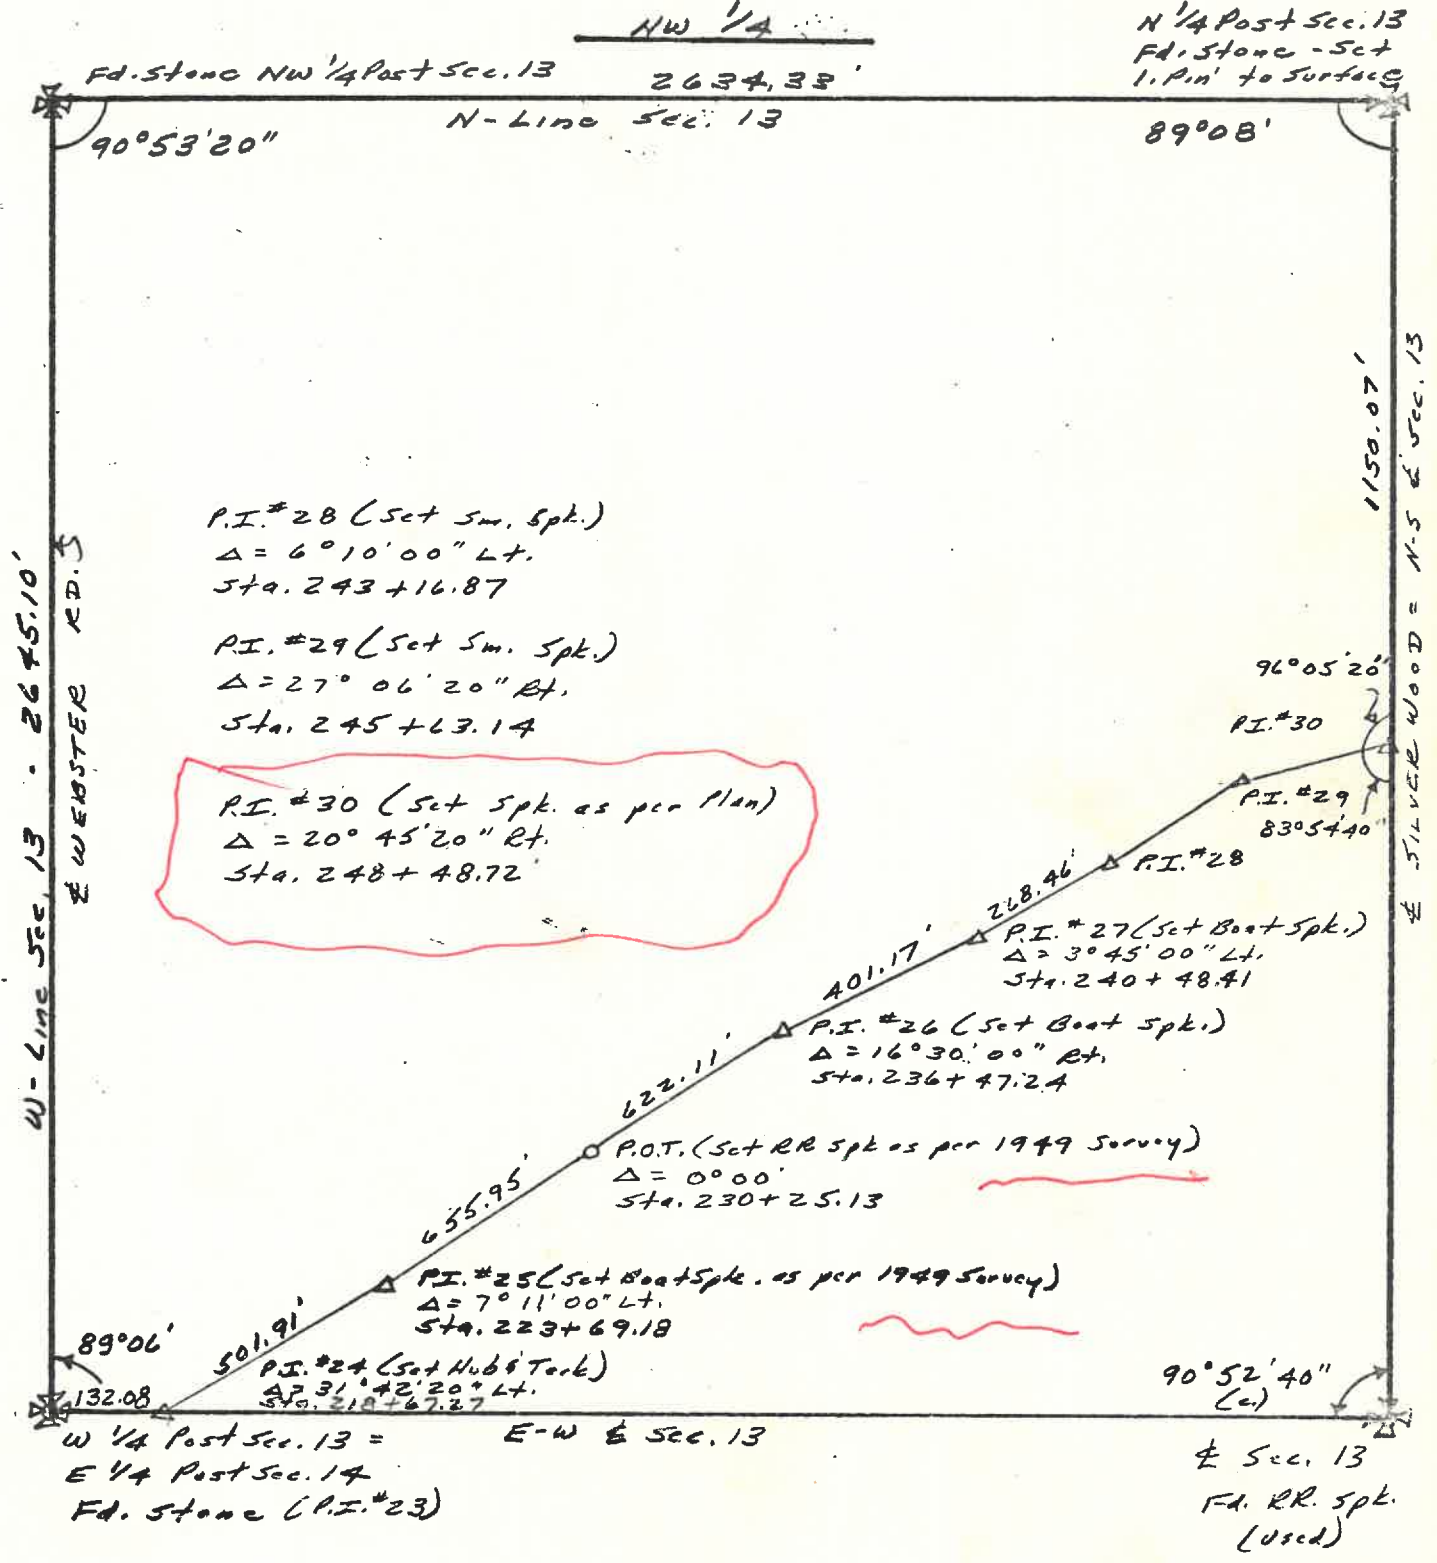 NW 1/4
N 1/4 Post Sec. 13
Fd. Stone - Set
I. Pin to Surface
Fd. Stone NW 1/4 Post Sec. 13
2634.33'
N-Line Sec. 13
90°53'20"
89°08'
1150.07'
℄ SILVER WOOD = N-S ℄ Sec. 13
W-Line Sec. 13 - 2645.10'
℄ WEBSTER RD.
P.I. #28 (Set Sm. Spk.)
Δ = 6°10'00" Lt.
Sta. 243+16.87
P.I. #29 (Set Sm. Spk.)
Δ = 27°06'20" Rt.
Sta. 245+63.14
P.I. #30 (Set Spk. as per Plan)
Δ = 20°45'20" Rt.
Sta. 248+48.72
96°05'20"
P.I. #30
P.I. #29
83°54'40"
P.I. #28
268.46'
P.I. #27 (Set Boat Spk.)
Δ = 3°45'00" Lt.
Sta. 240+48.41
401.17'
P.I. #26 (Set Boat Spk.)
Δ = 16°30'00" Rt.
Sta. 236+47.24
622.11'
P.O.T. (Set RR Spk as per 1949 Survey)
Δ = 0°00'
Sta. 230+25.13
655.95'
P.I. #25 (Set Boat Spk. as per 1949 Survey)
Δ = 7°11'00" Lt.
Sta. 223+69.18
501.91'
P.I. #24 (Set Hub & Tack)
Δ = 31°42'20" Lt.
Sta. 218+67.27
89°06'
132.08
90°52'40"
(c.)
W 1/4 Post Sec. 13 =
E 1/4 Post Sec. 14
Fd. Stone (P.I. #23)
E-W ℄ Sec. 13
℄ Sec. 13
Fd. RR. Spk.
(Used)